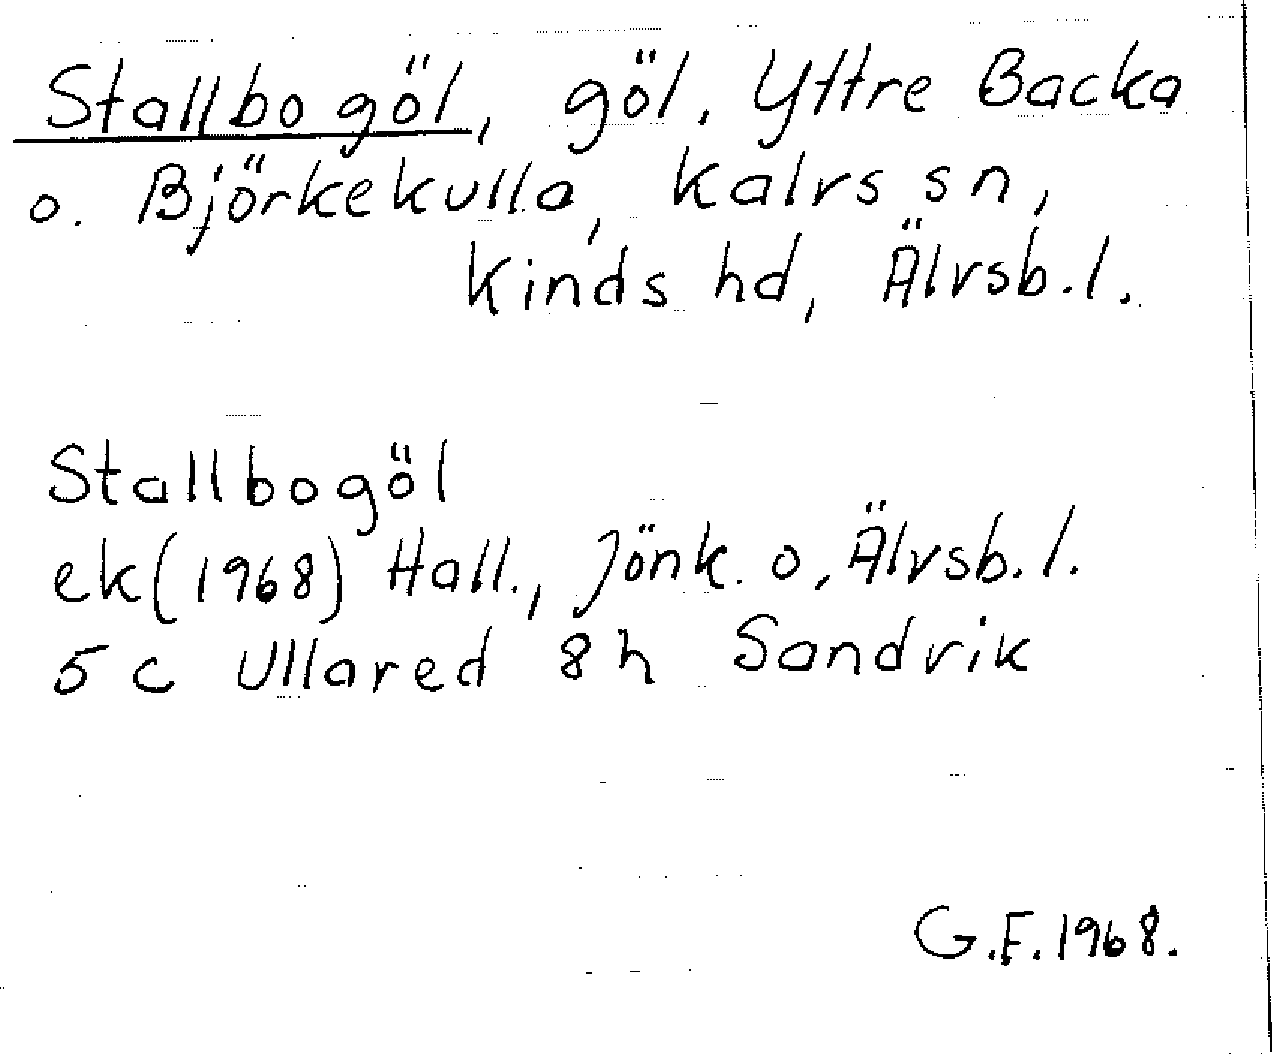 Stallbogöl, göl, Yttre Backa
o. Björkekulla, Kalvs sn,
Kinds hd, Älvsb.l.
Stallbogöl
ek(1968) Hall., Jönk. o, Älvsb.l.
5 c Ullared 8h Sandvik
G.F.1968.